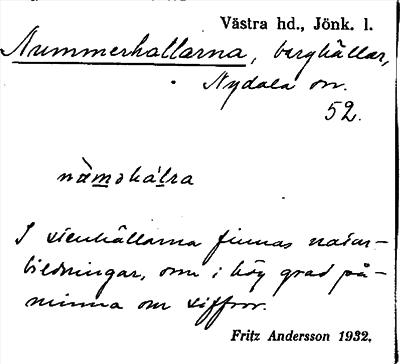 Västra hd., Jönk. l.
Nummerhallarna, berghällar,
Nydala sn.
52.
nùməhálra
I stenhällarna finnas natur-
bildningar, som i hög grad på-
minna om siffror.
Fritz Andersson 1932.